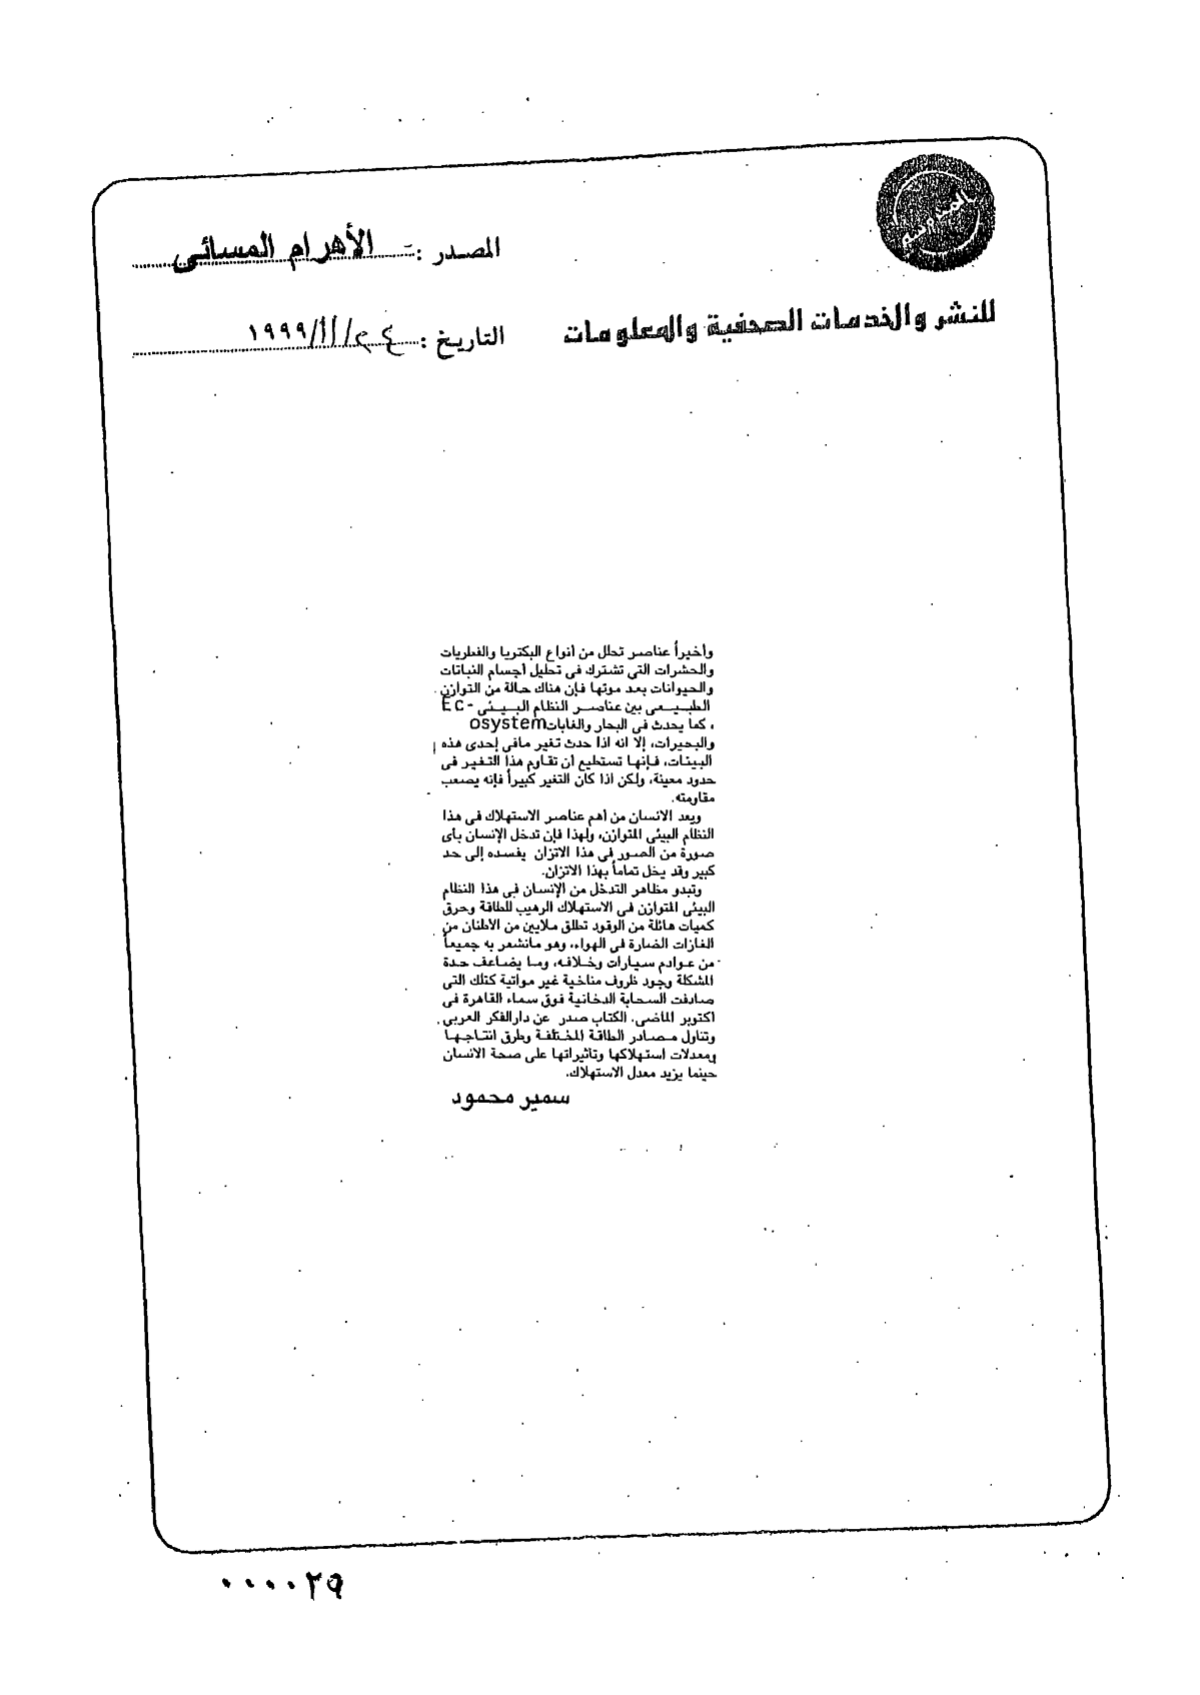 المصدر : الأهرام المسائى
للنشر والخدمات الصحفية والمعلومات
التاريخ : ٢٤/١١/١٩٩٩
وأخيراً عناصر تحلل من أنواع البكتريا والفطريات
والحشرات التى تشترك فى تحليل أجسام النباتات
والحيوانات بعد موتها فإن هناك حالة من التوازن
الطبيعى بين عناصر النظام البيئى Ec-
osystem، كما يحدث فى البحار والغابات
والبحيرات، إلا انه اذا حدث تغير مافى إحدى هذه
البيئات، فإنها تستطيع أن تقاوم هذا التغير فى
حدود معينة، ولكن اذا كان التغير كبيراً فإنه يصعب
مقاومته.
ويعد الانسان من أهم عناصر الاستهلاك فى هذا
النظام البيئى المتوازن، ولهذا فإن تدخل الإنسان بأى
صورة من الصور فى هذا الاتزان يفسده إلى حد
كبير وقد يخل تماماً بهذا الاتزان.
وتبدو مظاهر التدخل من الإنسان فى هذا النظام
البيئى المتوازن فى الاستهلاك الرهيب للطاقة وحرق
كميات هائلة من الوقود تطلق ملايين من الأطنان من
الغازات الضارة فى الهواء، وهو مانشعر به جميعاً
من عوادم سيارات وخلافه، وما يضاعف حدة
المشكلة وجود ظروف مناخية غير مواتية كتلك التى
صادفت السحابة الدخانية فوق سماء القاهرة فى
اكتوبر الماضى. الكتاب صدر عن دارالفكر العربى
وتناول مصادر الطاقة المختلفة وطرق انتاجها
ومعدلات استهلاكها وتاثيراتها على صحة الانسان
حينما يزيد معدل الاستهلاك.
سمير محمود
٠٠٠٠٢٩